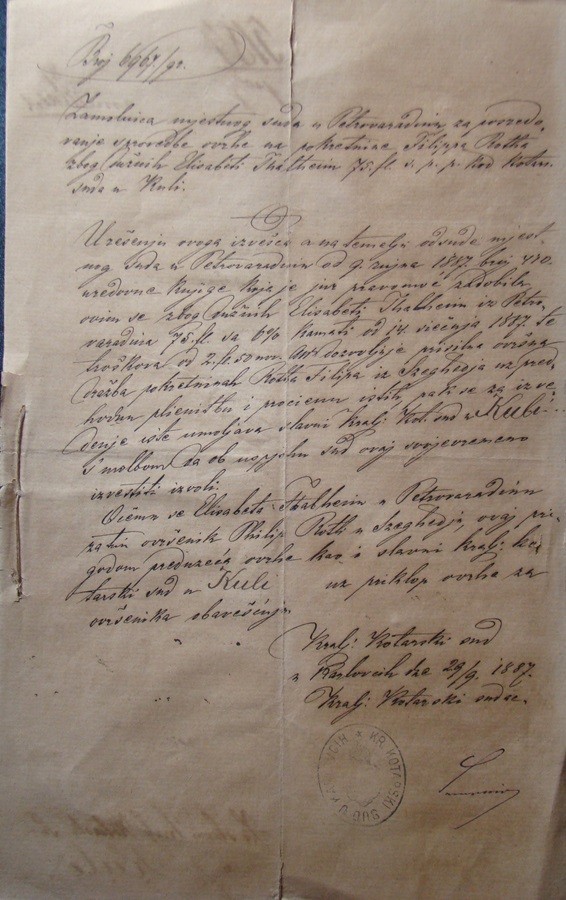 Broj 6967/gr.
Zamolnica mjestnog suda u Petrovaradinu za provedo
vanje sprovedbe ovrhe na pokretnine Filippa Rotha
zbog dužnih Elisabeti Thalheim 75. fl. s. p. p. kod kotar.
suda u Kuli.
U rešenju ovoga izvešća a na temelju odsude mjest-
nog suda u Petrovaradinu od 9. rujna 1887. broj 470.
uredovne knjige koja je jur pravomoć zadobila
ovim se zbog dužnih Elisabeti Thalheim iz Petro-
varadina 75. fl. sa 6% kamati od 14. siečnja 1887. te
troškova od 2. fl. 50 nov. dozvoljuje prisilna ovršna
dražba pokretninah Rotha Filipa iz Szeghedja uz pred
hodnu plienitbu i procienu istih, pak se za izve
denje iste umoljava slavni kralj. Kot. sud u Kuli
s molbom da ob uspjehu sud ovaj svojevremeno
izvestiti izvoli.
Očemu se Elisabeta Thalheim u Petrovaradinu
zatim ovršenik Philip Roth u Szeghedju, ovaj pri
godom preduzeća ovrhe kao i slavni kralj. ko
tarski sud u Kuli uz priklop ovrhe za
ovršenika obavešćuju.
Kralj. Kotarski sud
u Karlovcih dne 29/9. 1887.
Kralj. Kotarski sudac.
KR. KOTARSKI SUD U KARLOVCIH